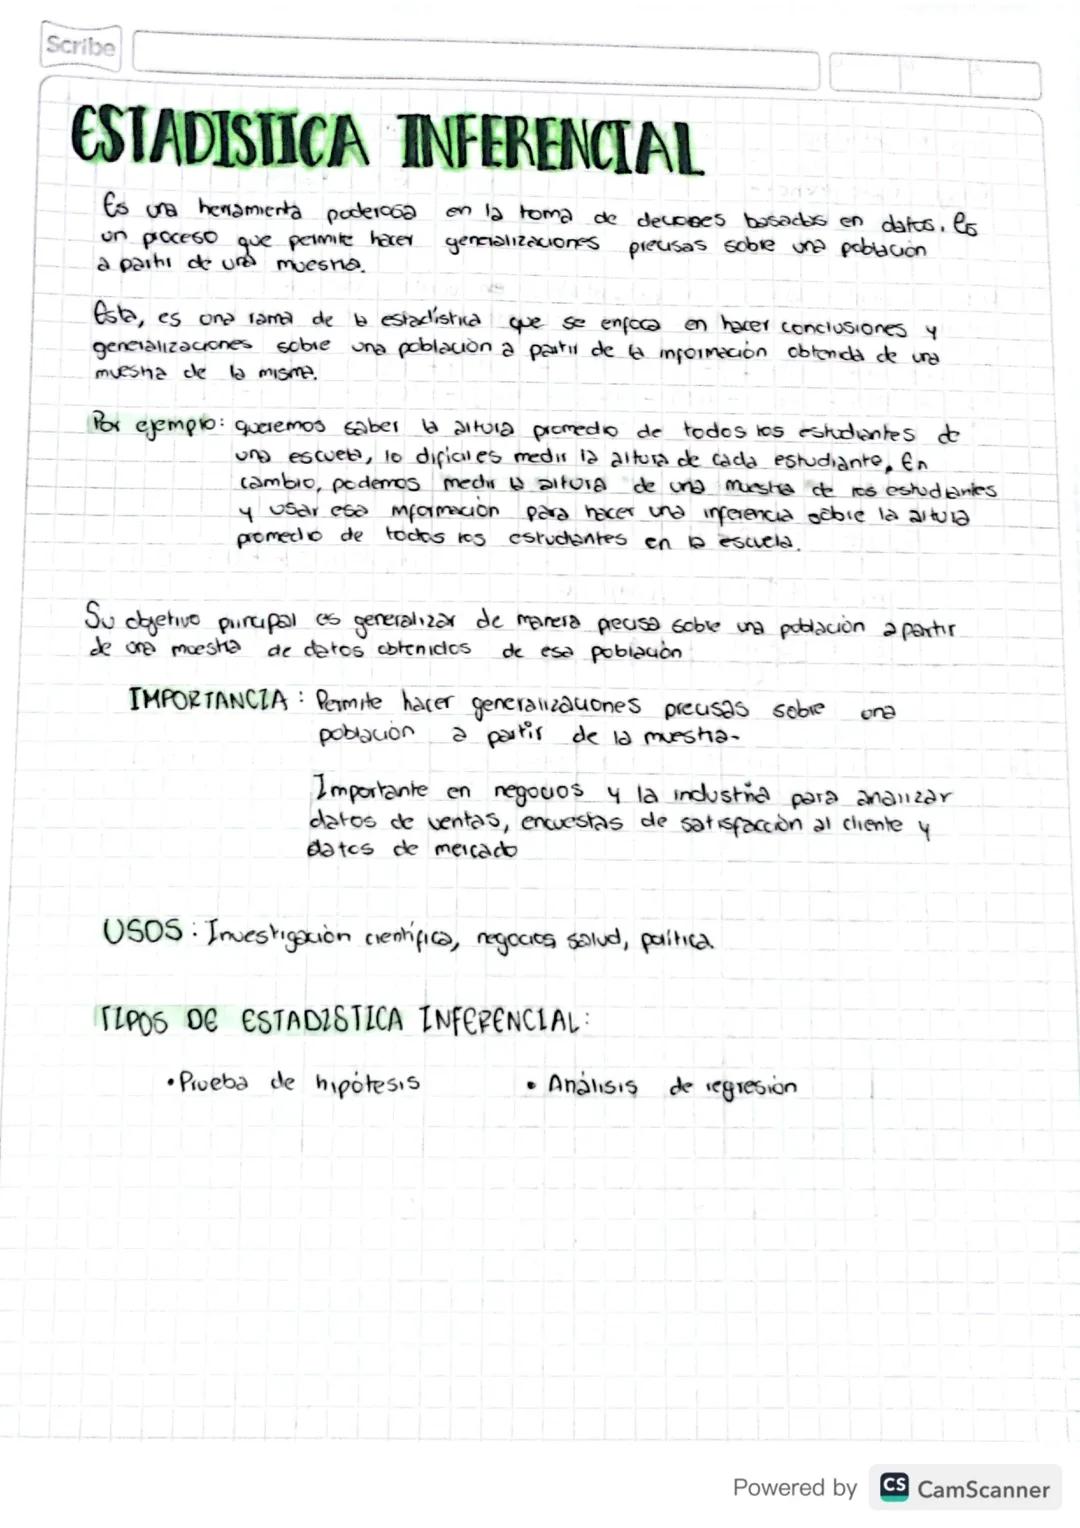 Scribe
ESTADISTICA INFERENCIAL
Es una herramienta poderosa en la toma de decisiones basadas en datos. Es
un proceso que permite hacer generalizaciones precisas sobre una población
a partir de una muestra.
Esta, es una rama de la estadística que se enfoca en hacer conclusiones y
generalizaciones sobre una población a partir de la información obtenida de una
muestra de la misma.
Por ejemplo: queremos saber la altura promedio de todos los estudiantes de
una escuela, lo dificil es medir la altura de cada estudiante. En
cambio, podemos medir la altura de una muestra de los estudiantes
y usar esa información para hacer una inferencia sobre la altura
promedio de todos los estudiantes en la escuela.
Su objetivo principal es generalizar de manera precisa sobre una población a partir
de una muestra de datos obtenidos de esa población
IMPORTANCIA: Permite hacer generalizaciones precisas sobre una
población a partir de la muestra.
Importante en negocios y la industria para analizar
datos de ventas, encuestas de satisfacción al cliente y
datos de mercado
USOS: Investigación científica, negocios, salud, política.
TIPOS DE ESTADISTICA INFERENCIAL:
• Prueba de hipótesis • Análisis de regresión
Powered by CS CamScanner